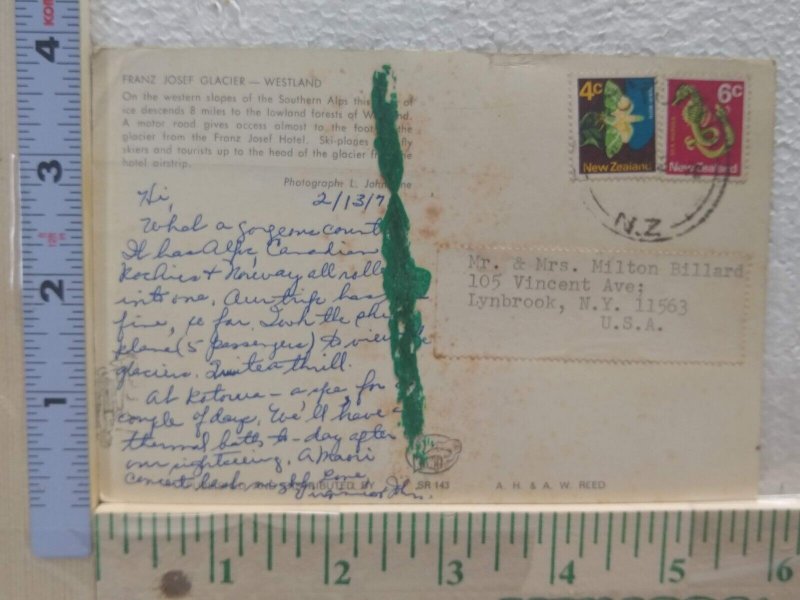 FRANZ JOSEF GLACIER — WESTLAND
On the western slopes of the Southern Alps this of
ice descends 8 miles to the lowland forests of W nd.
A motor road gives access almost to the foot the
glacier from the Franz Josef Hotel. Ski-planes fly
skiers and tourists up to the head of the glacier fr the
hotel airstrip.
Photograph: L. John ne
Hi,
2/13/7
What a gorgeous count
It has Alps, Canadian
Rockies & Norway all roll
into one. Our trip has
fine, so far. Took the ski
plane (5 passengers) to view
glaciers. Quite a thrill.
At Rotorua - a spa, for a
couple of days. We'll have
thermal baths to-day after
our sightseeing. A Maori
Concert
Love
4c
New Zealand
6c
New Zealand
N.Z
Mr. & Mrs. Milton Billard
105 Vincent Ave;
Lynbrook, N.Y. 11563
U.S.A.
DISTRIBUTED BY
SR 143
A. H. & A. W. REED
4
3
2
1
1
2
3
4
5
6